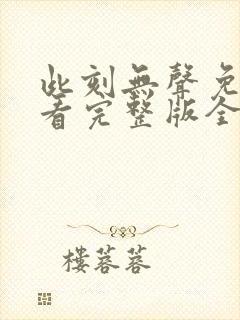 此刻無聲免
看完整版全
樓蓉蓉